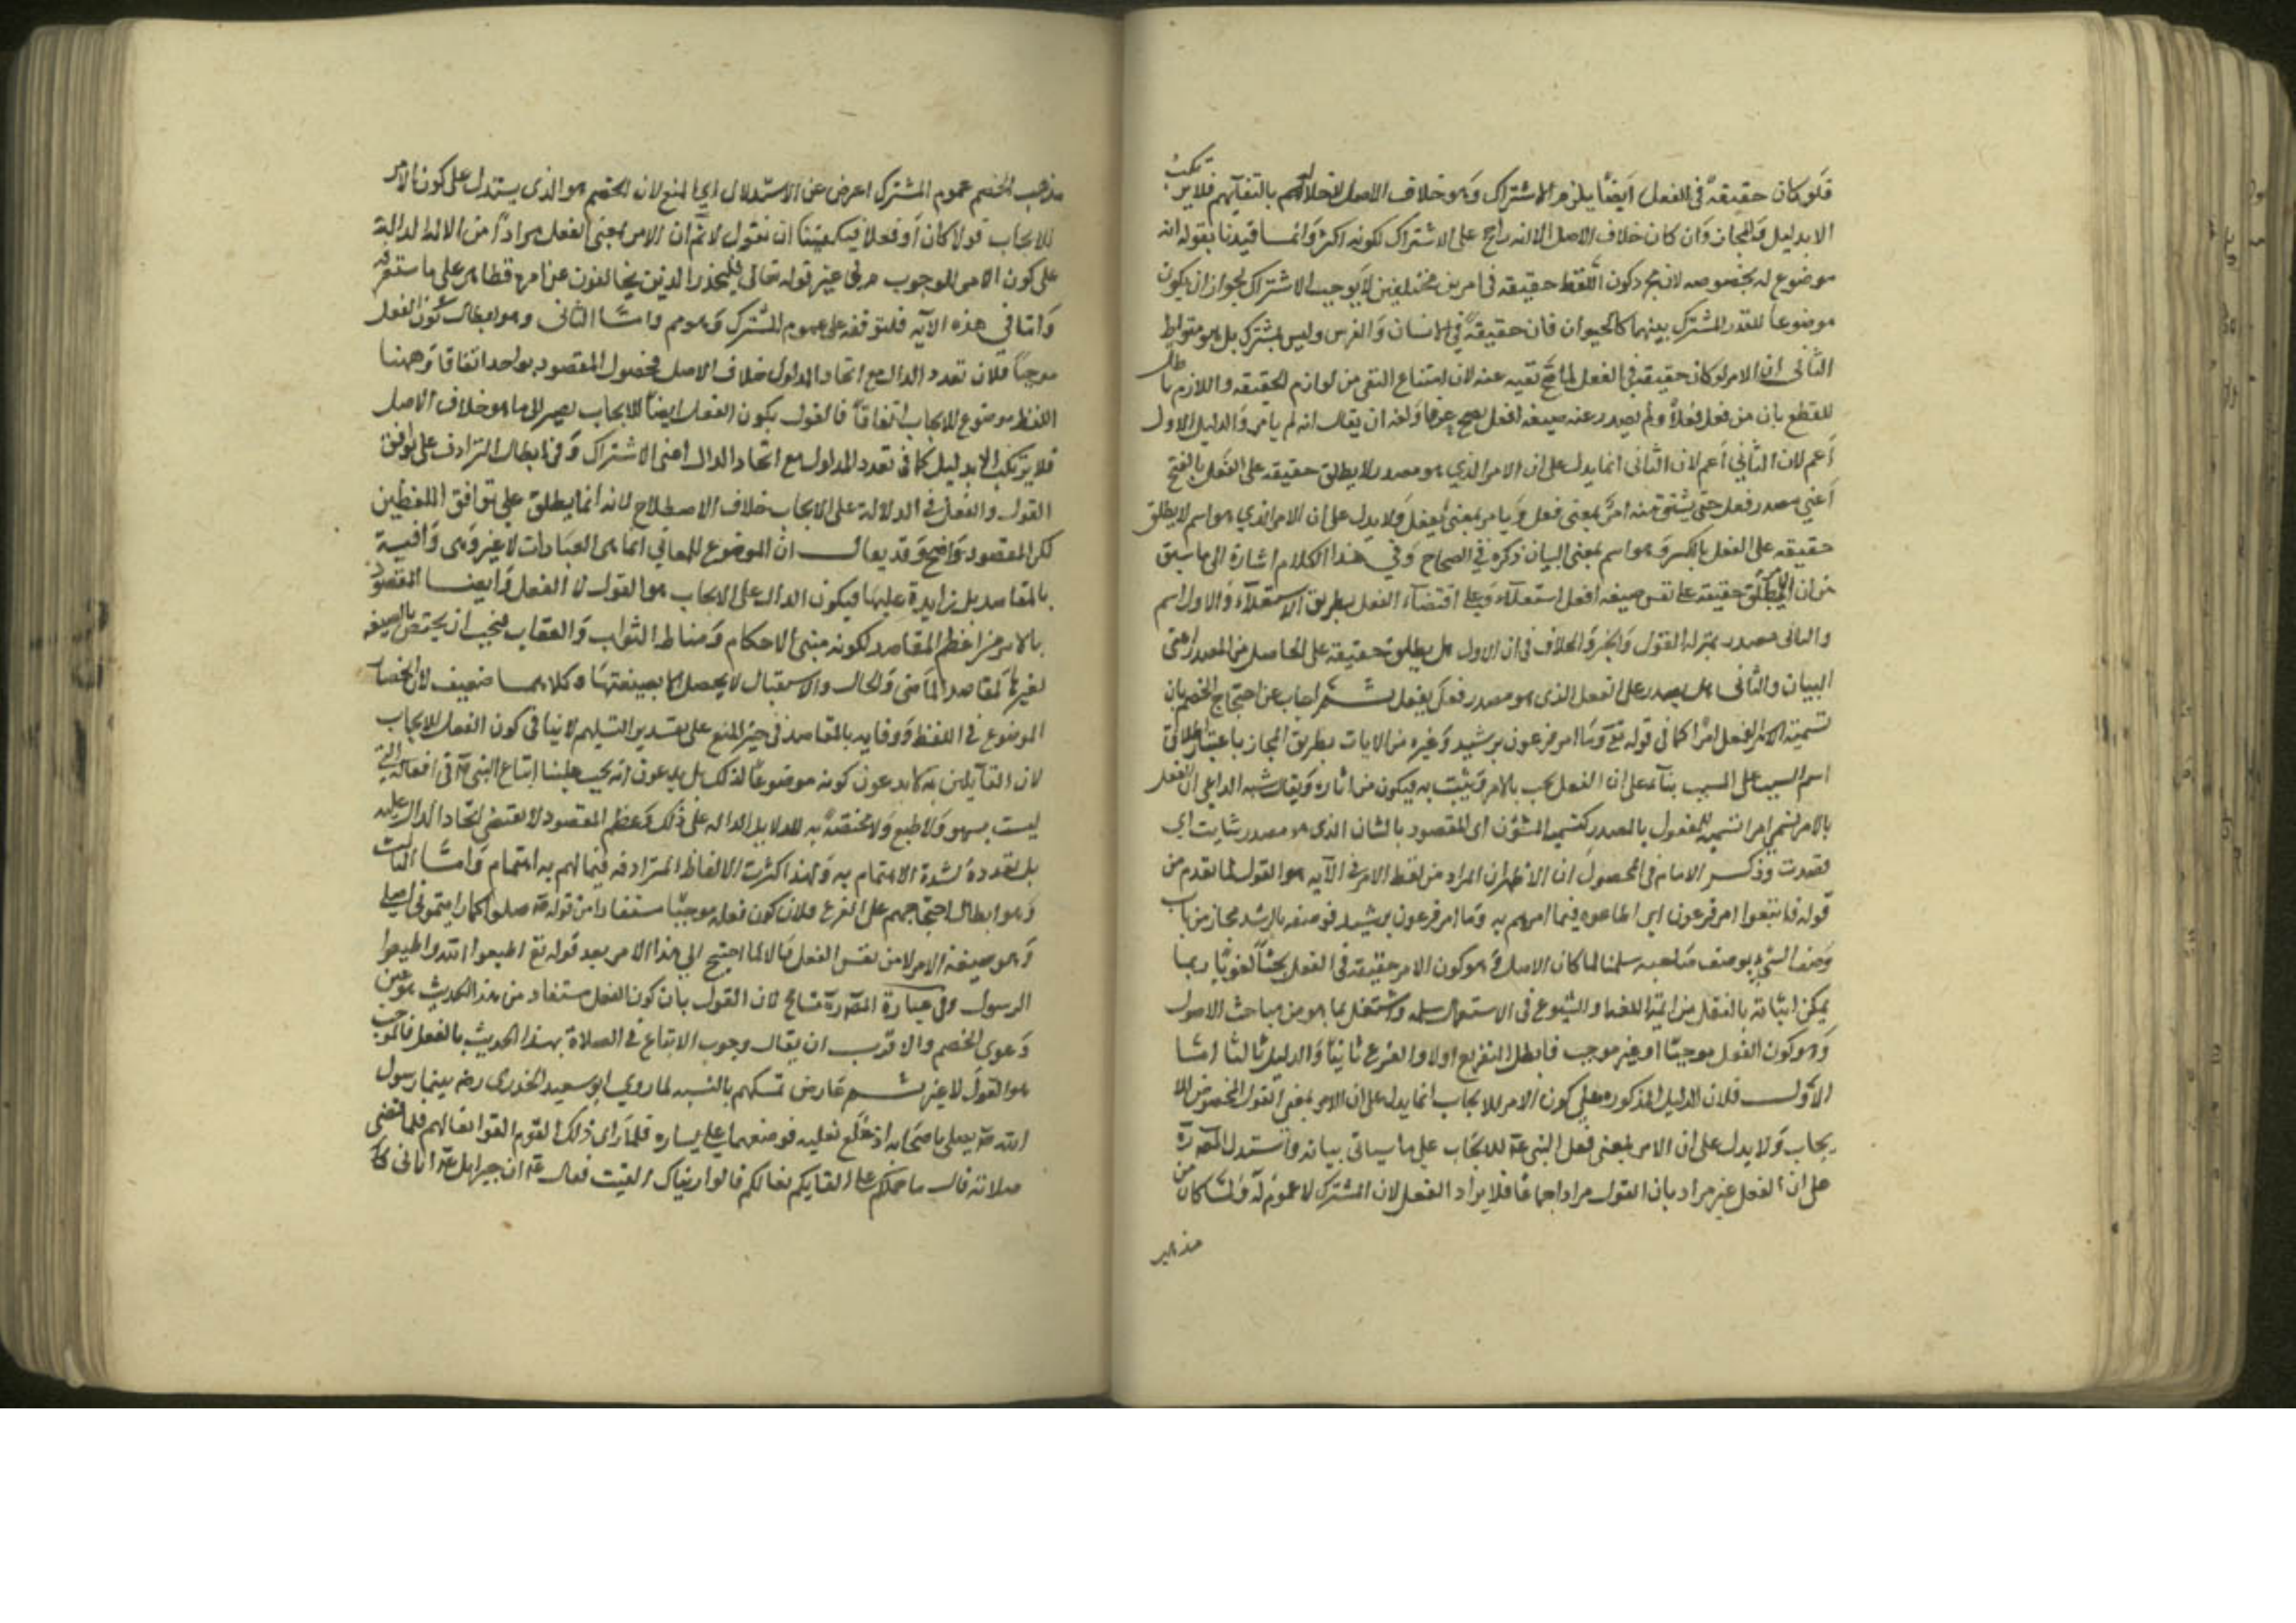 فلو كان حقيقة في الفعل أيضا يلزم الاشتراك وهو خلاف الأصل لإخلاله بالتفاهم فلا يرتكب
الا بدليل والمجاز وان كان خلاف الاصل الا انه راجح على الاشتراك لكونه اكثر وانما قيدنا بقوله انه
موضوع له بخصوصه لان مجرد كون اللفظ حقيقة في امرين مختلفين لا يوجب الاشتراك لجواز ان يكون
موضوعا للقدر المشترك بينهما كالحيوان فانه حقيقة في الانسان والفرس وليس بمشترك بل هو متواطئ
الثاني ان الامر لو كان حقيقة في الفعل لما صح نفيه عنه لان امتناع النفي من لوازم الحقيقة واللازم باطل
للقطع بان من فعل فعلا ولم يصدر عنه صيغة افعل يصح عرفا ولغة ان يقال انه لم يامر والدليل الاول
أعم لان الثاني أعم لان الثاني انما يدل على ان الامر الذي هو مصدر لا يطلق حقيقة على الفعل بالفتح
أعني مصدر فعل حتى يشتق منه امر بمعنى فعل ويامر بمعنى يفعل ولا يدل على ان الامر الذي هو اسم لا يطلق
حقيقة على الفعل بالكسر وهو اسم بمعنى الشان ذكره في الصحاح وفي هذا الكلام اشارة الى ما سبق
من ان الامر يطلق حقيقة على نفس صيغة افعل استعلاء وعلى اقتضاء الفعل بطريق الاستعلاء والاول اسم
والثاني مصدر بمنزلة القول والخبر والخلاف في ان الاول هل يطلق حقيقة على الحاصل من المصدر اعني
الشان والثاني هل يصدر على الفعل الذي هو مصدر فعل يفعل ثم اجاب عن احتجاج الخصم بان
تسمية الفعل امرا كما في قوله تع وما امر فرعون برشيد وغيره من الايات بطريق المجاز باعتبار اطلاق
اسم السبب على المسبب بناء على ان الفعل يجب بالامر ويثبت به فيكون من اثاره ويقال شبه الداعي الى الفعل
بالامر فسمي امرا تسمية للمفعول بالمصدر كتسمية المشؤن اي المقصود بالشان الذي هو مصدر شانت اي
قصدت وذكر الامام في المحصول ان الاظهر ان المراد من لفظ الامر في الآية هو القول لما تقدم من
قوله فاتبعوا امر فرعون اي اطاعوه فيما امرهم به وما امر فرعون برشيد فوصفه بالرشد مجاز من باب
وصف الشيء بوصف صاحبه سلمنا لما كان الاصل وهو كون الامر حقيقة في الفعل بحثا لغويا ربما
يمكن اثباته بالنقل من ائمة اللغة والشيوع في الاستعمال سلمه واشتغل بما هو من مباحث الاصول
وهو كون الفعل موجبا او غير موجب فابطل التفريع اولا والفرع ثانيا والدليل ثالثا امشا
الاول فلان الدليل المذكوره على كون الامر للايجاب انما يدل على ان الامر بمعنى القول المخصوص للا
يجاب ولا يدل على ان الامر بمعنى فعل النبي عم للايجاب على ما سياتي بيانه واستدل المص رة
على ان الفعل غير مراد بان القول مراد اجماعا فلا يراد الفعل لان المشترك لا عموم له ولما كان من
مذهب
مذهب الخصم عموم المشترك اعرض عن الاستدلال الى المنع لان الخصم هو الذي يستدل على كون الامر
للايجاب قولا كان أو فعلا فيكفينا ان نقول لا نم ان الامر بمعنى الفعل مراد من الادلة الدالة
على كون الامر للوجوب هو في غير قوله تعالى فليحذر الذين يخالفون عن امره فظاهر على ما ستعرفه
وأما في هذه الآية فلتوقفه على عموم المشترك وهو مم واما الثاني وهو ابطال كون الفعل
موجبا فلان تعدد الدال مع اتحاد المدلول خلاف الاصل لحصول المقصود بواحد اتفاقا وههنا
اللفظ موضوع للايجاب اتفاقا فالقول بكون الفعل ايضا للايجاب يصير الى ما هو خلاف الاصل
فلا يرتكب الا بدليل كما في تعدد المدلول مع اتحاد الدال اعني الاشتراك وفي ابطال الترادف على توافق
القول والفعل في الدلالة على الايجاب خلاف الاصطلاح لانه انما يطلق على توافق اللفظين
لكن المقصود واضح وقد يقال ان الموضوع للمعاني انما هي العبارات لا غير وهي وافية
بالمقاصد بل زايدة عليها فيكون الدال على الايجاب هو القول لا الفعل وايضا المقصود
بالامر من اعظم المقاصد لكونه مبنى الاحكام ومناط الثواب والعقاب فيجب ان يختص بالصيغة
لغيرها كمقاصد الماضي والحال والاستقبال لا يحصل الا بصيغتها وكلاهما ضعيف لان انحصار
الموضوع في اللفظ ووفايه بالمقاصد في حيز المنع على تقدير التسليم لا ينافي كون الفعل للايجاب
لان القائلين به لا يدعون كونه موضوعا لذلك بل يدعون انه يجب علينا اتباع النبي عم في افعاله التي
ليست بسهو ولا طبع ولا مختصة به للدلايل الدالة على ذلك وعظم المقصود لا يقتضي اتحاد الدال عليه
بل تعدده لشدة الاهتمام به ولهذا اكثرت الالفاظ المترادفه فيما لهم به اهتمام واما الثالث
وهو ابطال احتجاجهم على الفرع فلان كون فعله موجبا مستفاد من قوله عم صلوا كما رايتموني اصلي
وهو صيغة الامر لا من نفس الفعل والا لما احتيج الى هذا الامر بعد قوله تع اطيعوا الله واطيعوا
الرسول وفي عبارة المص رة تسامح لان القول بان كون الفعل مستفاد من هذا الحديث هو عين
دعوى الخصم والاقرب ان يقال وجوب الاتباع في الصلاة بهذا الحديث لا بالفعل فالموجب
هو القول لا غير ثم عارض تمسكهم بالسنة لما روي ابو سعيد الخدري رضه بينما رسول
الله عم يصلي باصحابه اذ خلع نعليه فوضعهما على يساره فلما راى ذلك القوم القوا نعالهم فلما قضى
صلاته قال ما حملكم على القايكم نعالكم قالوا رايناك القيت فقال عم ان جبرايل عم اتاني